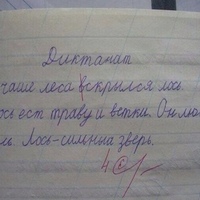 Диктанат
чаше леса вскрылся лось.
ось ест траву и ветки. Он лю
ль. Лось-симныа зверь.
4